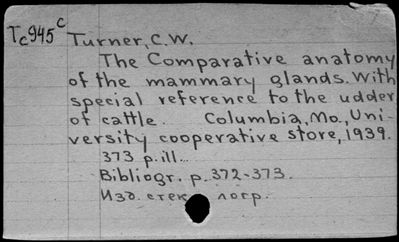 Tc945c
Turner, C.W.
The Comparative anatomy
of the mammary glands. With
special reference to the udder
of cattle. Columbia, Mo., Uni-
versity cooperative store, 1939.
373 p. ill.
Bibliogr. p. 372-373.
Изд. стек логр.